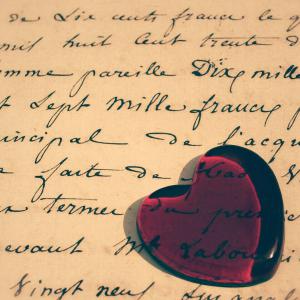 de Six cents francs le q
mil huit Cent trente d
omme pareille Dix mille
t Sept Mille francs p
incipal de l'acqu
e faite de
termes du pre
evant Me Labou
Vingt neuf